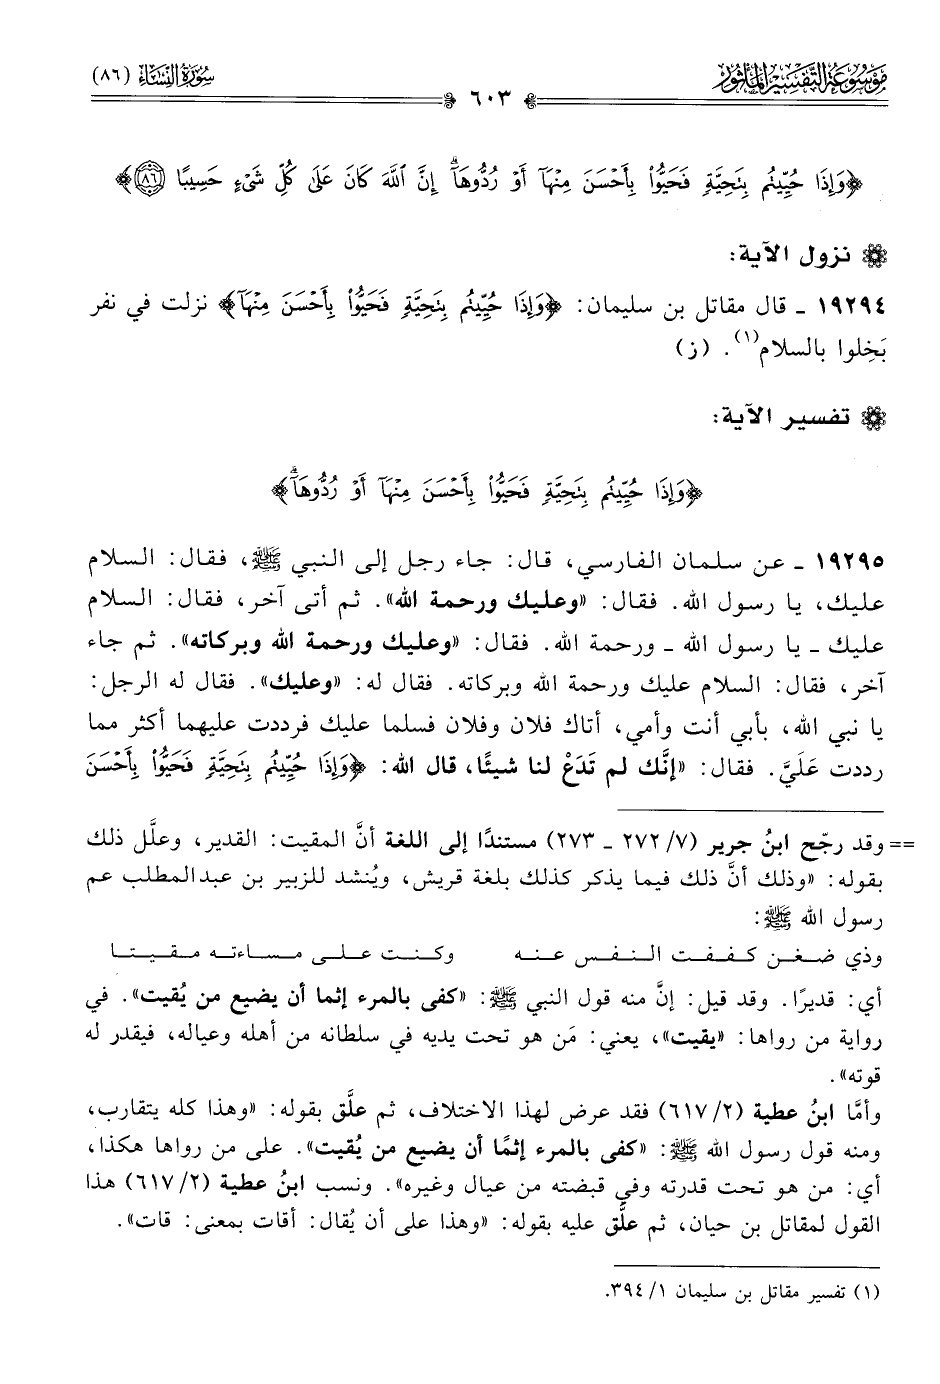 موسوعة التفسير المأثور
سورة النساء (٨٦)
٦٠٣
﴿وَإِذَا حُيِّيتُم بِتَحِيَّةٍ فَحَيُّوا۟ بِأَحْسَنَ مِنْهَآ أَوْ رُدُّوهَآ ۗ إِنَّ ٱللَّهَ كَانَ عَلَىٰ كُلِّ شَىْءٍ حَسِيبًا ٨٦﴾
نزول الآية:
١٩٢٩٤ ـ قال مقاتل بن سليمان: ﴿وَإِذَا حُيِّيتُم بِتَحِيَّةٍ فَحَيُّوا۟ بِأَحْسَنَ مِنْهَآ﴾ نزلت في نفر
بَخِلوا بالسلام(١). (ز)
تفسير الآية:
﴿وَإِذَا حُيِّيتُم بِتَحِيَّةٍ فَحَيُّوا۟ بِأَحْسَنَ مِنْهَآ أَوْ رُدُّوهَآ ۗ﴾
١٩٢٩٥ ـ عن سلمان الفارسي، قال: جاء رجل إلى النبي ﷺ، فقال: السلام
عليك، يا رسول الله. فقال: «وعليك ورحمة الله». ثم أتى آخر، فقال: السلام
عليك ـ يا رسول الله ـ ورحمة الله. فقال: «وعليك ورحمة الله وبركاته». ثم جاء
آخر، فقال: السلام عليك ورحمة الله وبركاته. فقال له: «وعليك». فقال له الرجل:
يا نبي الله، بأبي أنت وأمي، أتاك فلان وفلان فسلما عليك فرددت عليهما أكثر مما
رددت عَلَيَّ. فقال: «إنَّك لم تَدَعْ لنا شيئًا، قال الله: ﴿وَإِذَا حُيِّيتُم بِتَحِيَّةٍ فَحَيُّوا۟ بِأَحْسَنَ
== وقد رجّح ابنُ جرير (٧/ ٢٧٢ ـ ٢٧٣) مستندًا إلى اللغة أنَّ المقيت: القدير، وعلَّل ذلك
بقوله: «وذلك أنَّ ذلك فيما يذكر كذلك بلغة قريش، ويُنشد للزبير بن عبدالمطلب عم
رسول الله ﷺ:
وذي ضغن كففت النفس عنه وكنت على مساءته مقيتا
أي: قديرًا. وقد قيل: إنَّ منه قول النبي ﷺ: «كفى بالمرء إثما أن يضيع من يُقيت». في
رواية من رواها: «يقيت»، يعني: مَن هو تحت يديه في سلطانه من أهله وعياله، فيقدر له
قوته».
وأمَّا ابنُ عطية (٢/ ٦١٧) فقد عرض لهذا الاختلاف، ثم علَّق بقوله: «وهذا كله يتقارب،
ومنه قول رسول الله ﷺ: «كفى بالمرء إثمًا أن يضيع من يُقيت». على من رواها هكذا،
أي: من هو تحت قدرته وفي قبضته من عيال وغيره». ونسب ابنُ عطية (٢/ ٦١٧) هذا
القول لمقاتل بن حيان، ثم علَّق عليه بقوله: «وهذا على أن يُقال: أقات بمعنى: قات».
(١) تفسير مقاتل بن سليمان ١/ ٣٩٤.